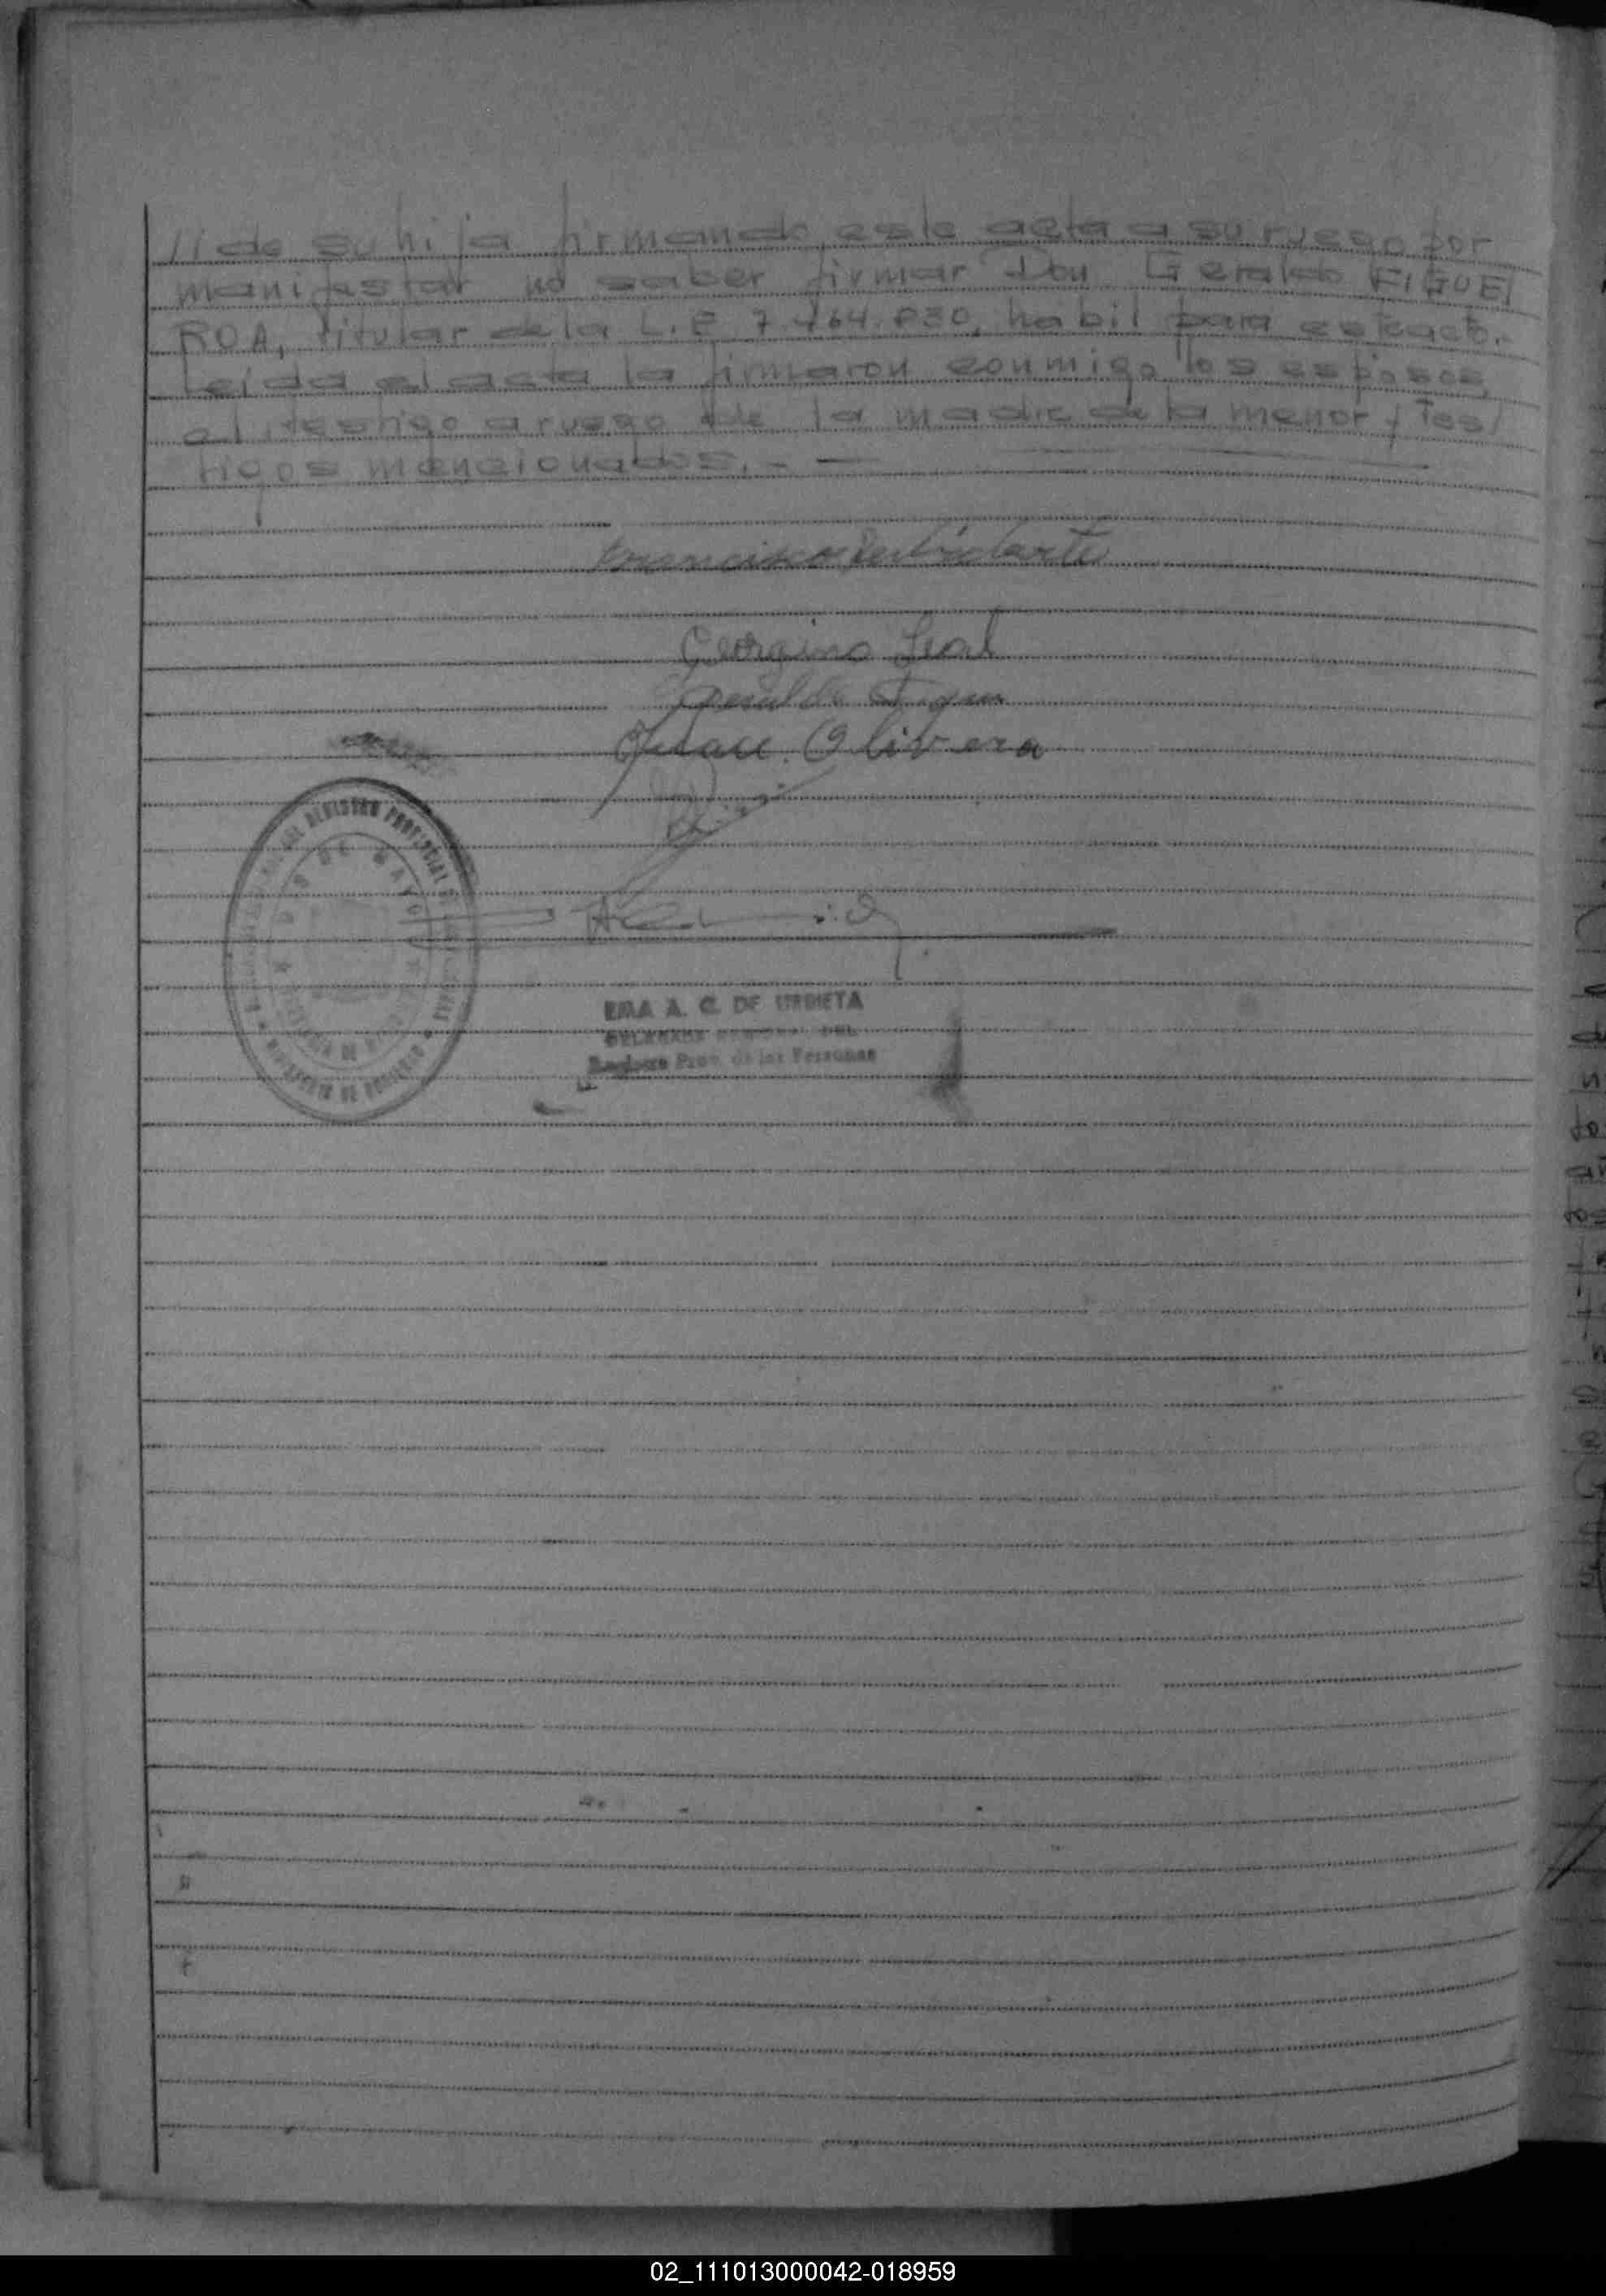 // de su hija firmando este acta a su ruego por
manifestar no saber firmar Don Geraldo FIGUE/
ROA, titular de la L.E 7.464.830, habil para este acto.-
Leida el acta la firmaron conmigo los esposos,
el testigo a ruego de la madre de la menor y tes/
tigos mencionados.- —
Francisco
Georgina Leal
Geraldo
Juan Olivera
REGISTRO PROVINCIAL
25 DE MAYO
MINISTERIO DE GOBIERNO
EMA A. C. DE URDIETA
DEL
Registro Prov. de las Personas
02_111013000042-018959